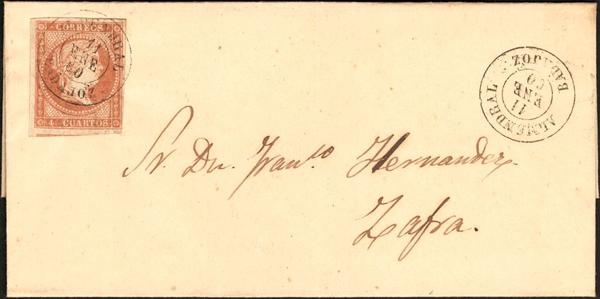 CORREOS
4 CUARTOS
ALMENDRAL BADAJOZ
11
ENE
60
Sr. Dn. Franco Hernandez
Zafra.